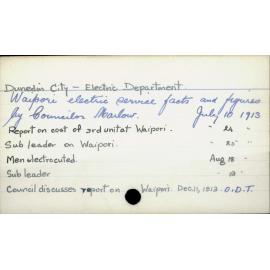 Dunedin City - Electric Department
Waipori electric service facts and figures
by Councillor Marlow. July 10 1913
Report on cost of 3rd unit at Waipori. " 24 "
Sub leader on Waipori. " 25 "
Men electrocuted. Aug 18 "
Sub leader " 19 "
Council discusses report on Waipori. Dec. 11, 1913. O.D.T.